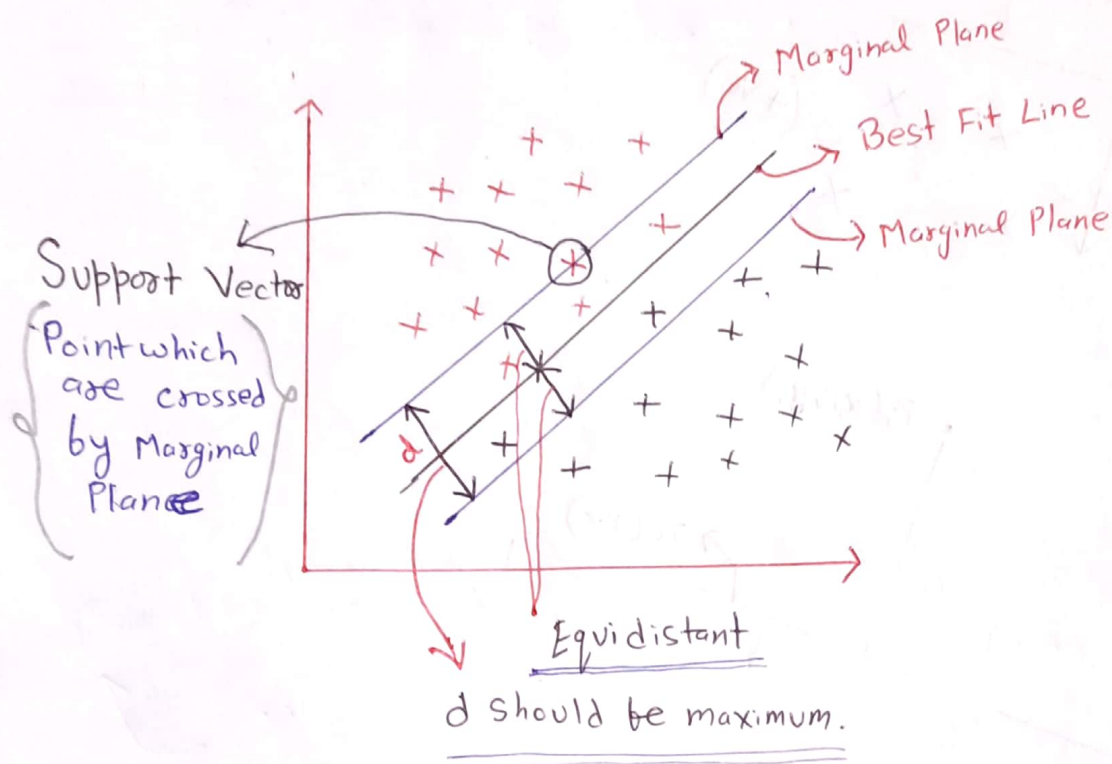 Marginal Plane
Best Fit Line
Marginal Plane
Support Vector
Point which
are crossed
by Marginal
Plane
d
Equidistant
d should be maximum.